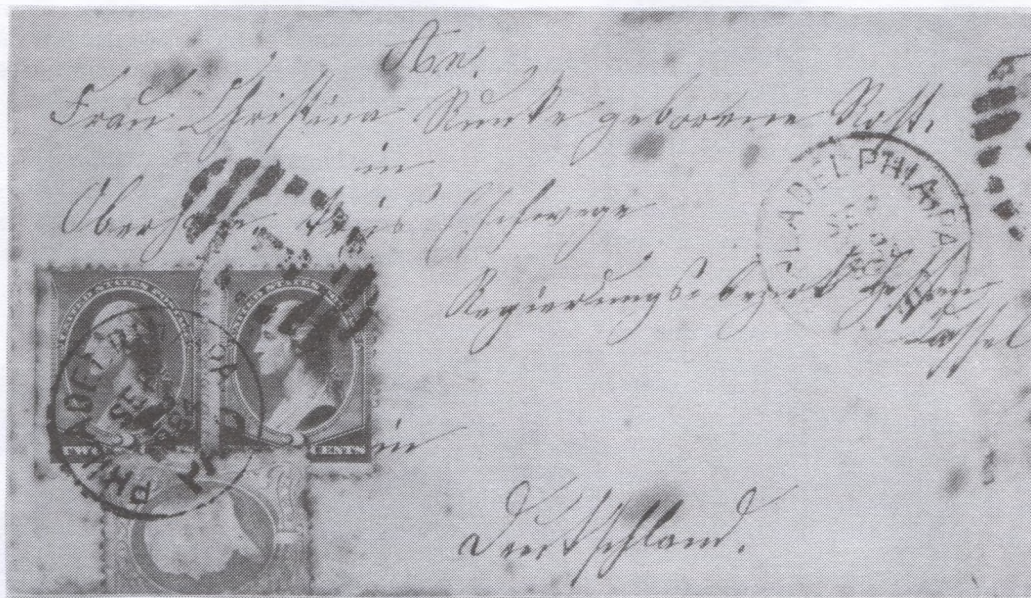 An
Frau Christina Runke geborene Rost.
in
Kreis Eschwege
Regierungsbezirk Hessen
Cassel
in
Deutschland.
PHILADELPHIA PA
UNITED STATES POSTAGE
TWO CENTS
UNITED STATES
CENTS
PHILADELPHIA
SE